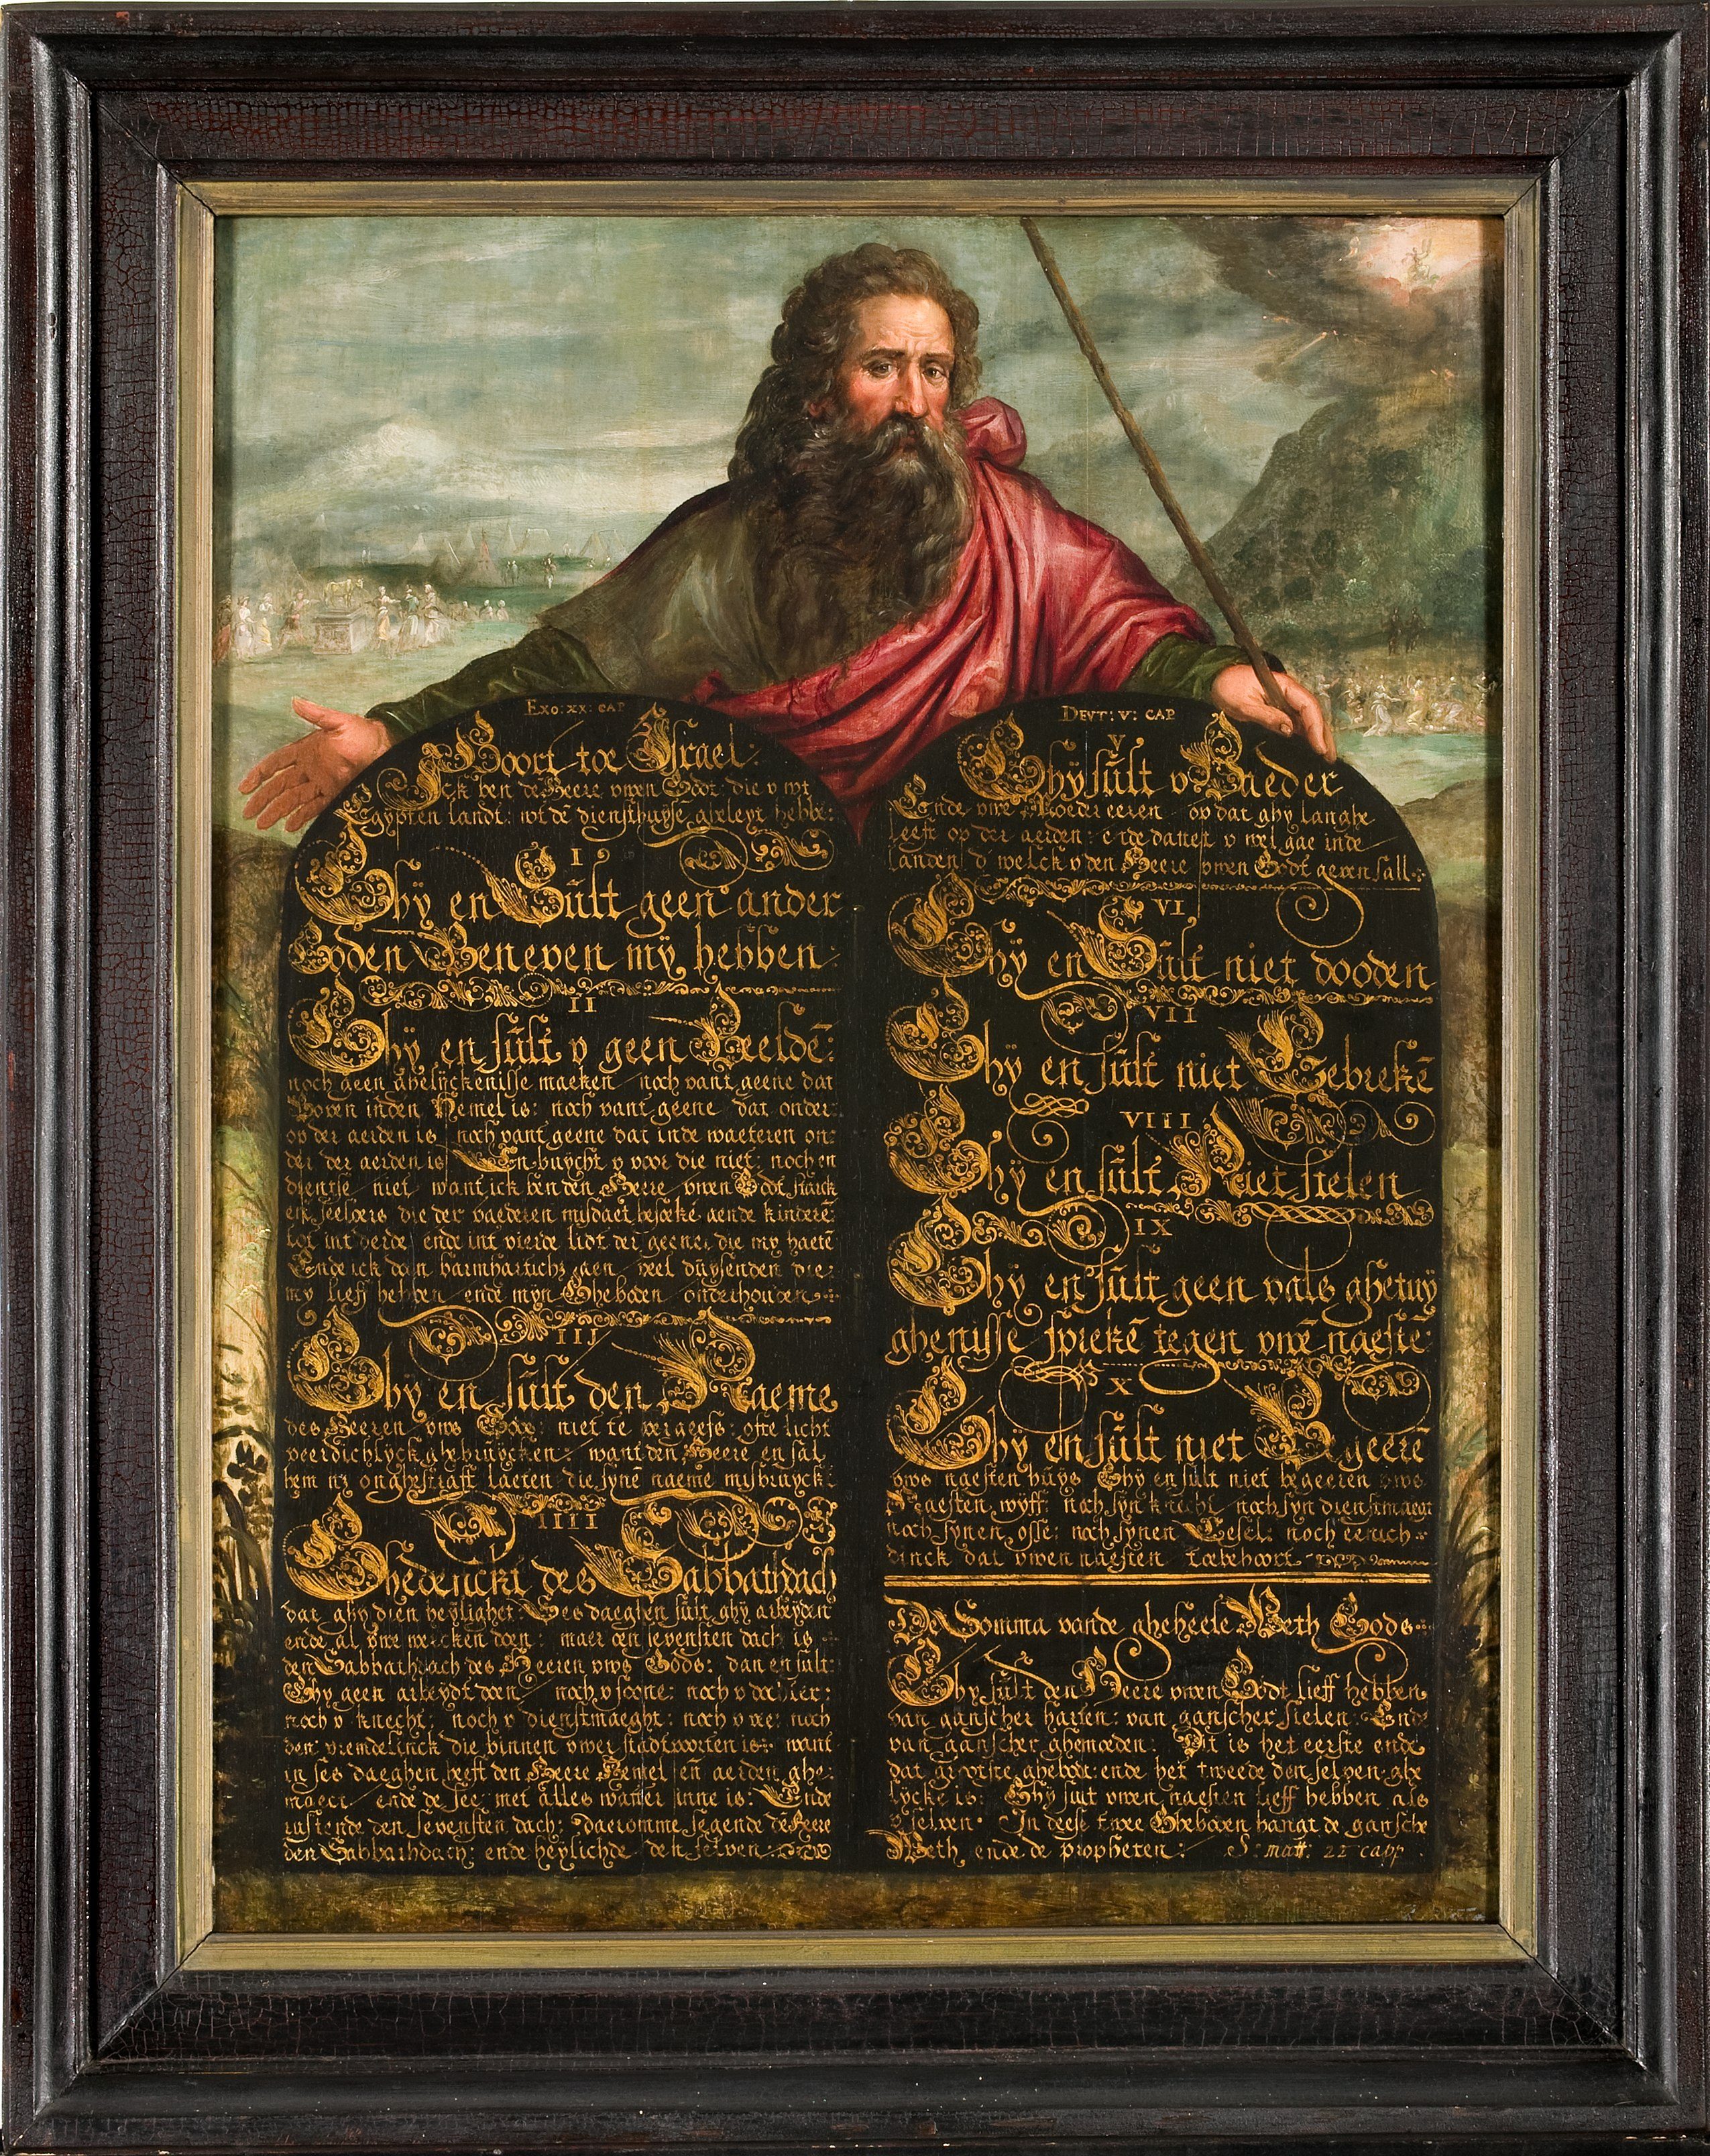 Exo: xx: cap
Hoort toe Israel
Ick ben de Heere uwen Godt: die v wt
Egypten landt: wt dē diensthuyse gheleyt hebbe:
I
Ghÿ en Sult geen ander
Goden Beneven mÿ hebben:
II
Ghÿ en sult v geen Beeldē:
noch geen ghelyckenisse maeken noch vant geene dat
Boven inden Hemel is: noch vant geene dat onder
op der aerden is noch vant geene dat inde waeteren on:
der der aerden is En buycht v voor die niet: noch en
dientse niet want ick ben den Heere uwen Godt starck
die der vaederen misdaet besoekē aende kinderē
tot int derde ende int vierde lidt der geener die my haetē
Ende ick doen barmhertich: aen veel duysenden die:
my lieff hebben ende mÿn Gheboden onderhouden
III
Ghÿ en sult den Naeme
des Heeren uws Gods niet te vergeefs: ofte licht
veerdichlyck ghebruycken: want den Heere en sal
hem nt onghestrafft laeten die synē naeme misbruyckt
IIII
Ghedenckt des Sabbathdach
dat ghy dien heÿlighet: Ses daeghen sult ghÿ arbeyden
ende al uwe wercken doen: maer den sevensten dach is
den Sabbathdach des Heeren uws Gods: dan en sult
Ghy geen arbeydt doen noch v soone: noch v dochter:
noch v knecht: noch v dienstmaeght: noch v vee: noch
den vremdelinck die binnen uwer stadtpoorten is: want
in ses daeghen heeft den Heere Hemel eñ aerden ghe:
maeckt ende de See met alles watter inne is: Ende
rustende den sevensten dach: Daeromme segende de Heere
den Sabbathdach: ende heylichde den selven
Devt: v: cap
V
Ghÿ sult v Vaeder
Ende uwe Moeder eeren op dat ghy langhe
leeft op der aerden: ende dattet v wel gae inde
landen d welck v den Heere uwen Godt geven sall
VI
Ghÿ en Sult niet dooden
VII
Ghÿ en sult niet Eebrekē
VIII
Ghÿ en sult Niet stelen
IX
Ghÿ en sult geen vals ghetuÿ
ghenisse sprekē tegen uwē naestē:
X
Ghÿ en sult niet Begeerē
uws naesten huys Ghÿ en sult niet begeeren uws
Naesten wyff: noch syn knecht noch syn dienstmaegt
noch synen osse: noch synen Eesel: noch eenich
dinck dat uwen naesten toebehoort
De Somma vande gheheele Weth Gods
Ghy sult den Heere uwen Godt lieff hebben
van ganscher harten: van ganscher sielen: Ende
van ganscher ghemoeden: Dit is het eerste ende
dat grootste ghebodt: ende het tweede den selven ghe
lycke is: Ghÿ sult uwen naesten lieff hebben als
v selven In deese twee Gheboden hangt de gansche
Weth ende de propheten: S: matt: 22 capp